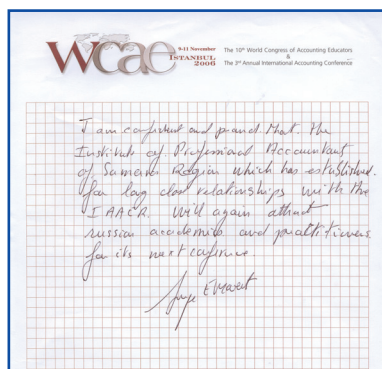 wcae
9-11 November
ISTANBUL
2006
The 10th World Congress of Accounting Educators
&
The 3rd Annual International Accounting Conference
I am confident and proud that the
Institute of Professional Accountant
of Samara Region which has established
for long close relationships with the
IAAER. Will again attract
russian academics and practitioners
for its next conference.